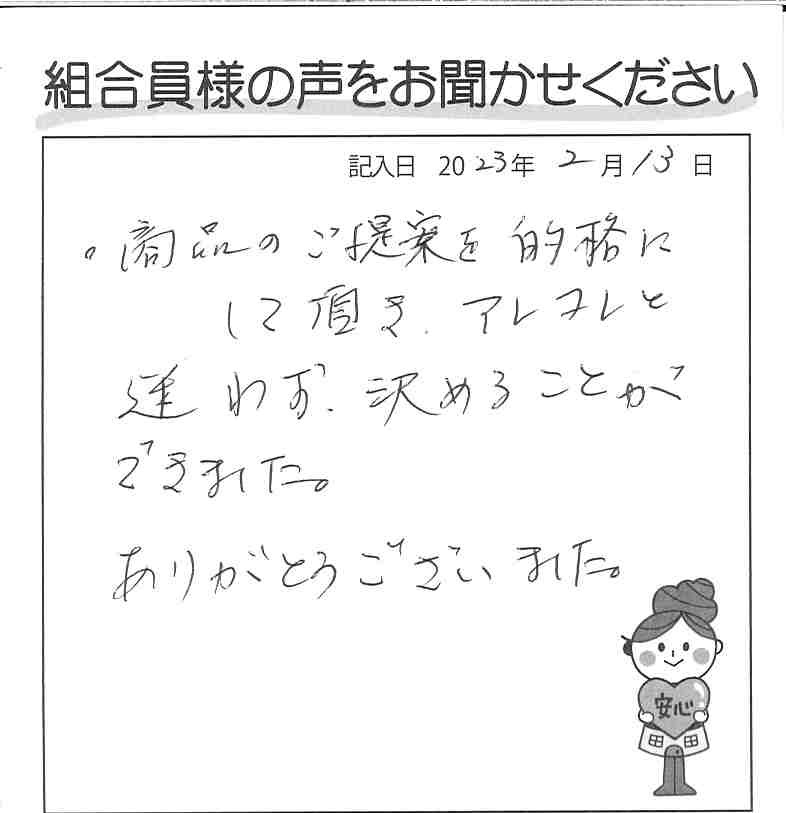 組合員様の声をお聞かせください
記入日 2023年 2月13日
。商品のご提案を的格に
して頂き、アレコレと
迷わず、決めることが
できました。
ありがとうございました。
安心